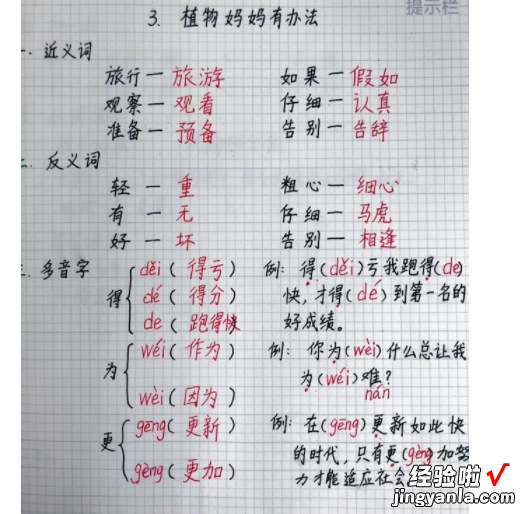 提示栏
3. 植物妈妈有办法
一. 近义词
旅行一旅游 如果一假如
观察一观看 仔细一认真
准备一预备 告别一告辞
二. 反义词
轻一重 粗心一细心
有一无 仔细一马虎
好一坏 告别一相逢
三. 多音字
得
děi(得亏)
dé(得分)
de(跑得快)
例: 得(děi)亏我跑得(de)
快, 才得(dé)到第一名的
好成绩。
为
wéi(作为)
wèi(因为)
例: 你为(wèi)什么总让我
为(wéi)难?
nán
更
gēng(更新)
gèng(更加)
例: 在(gēng)更新如此快
的时代, 只有更(gèng)加努
力才能适应社会
经验啦√
jingyanla.com